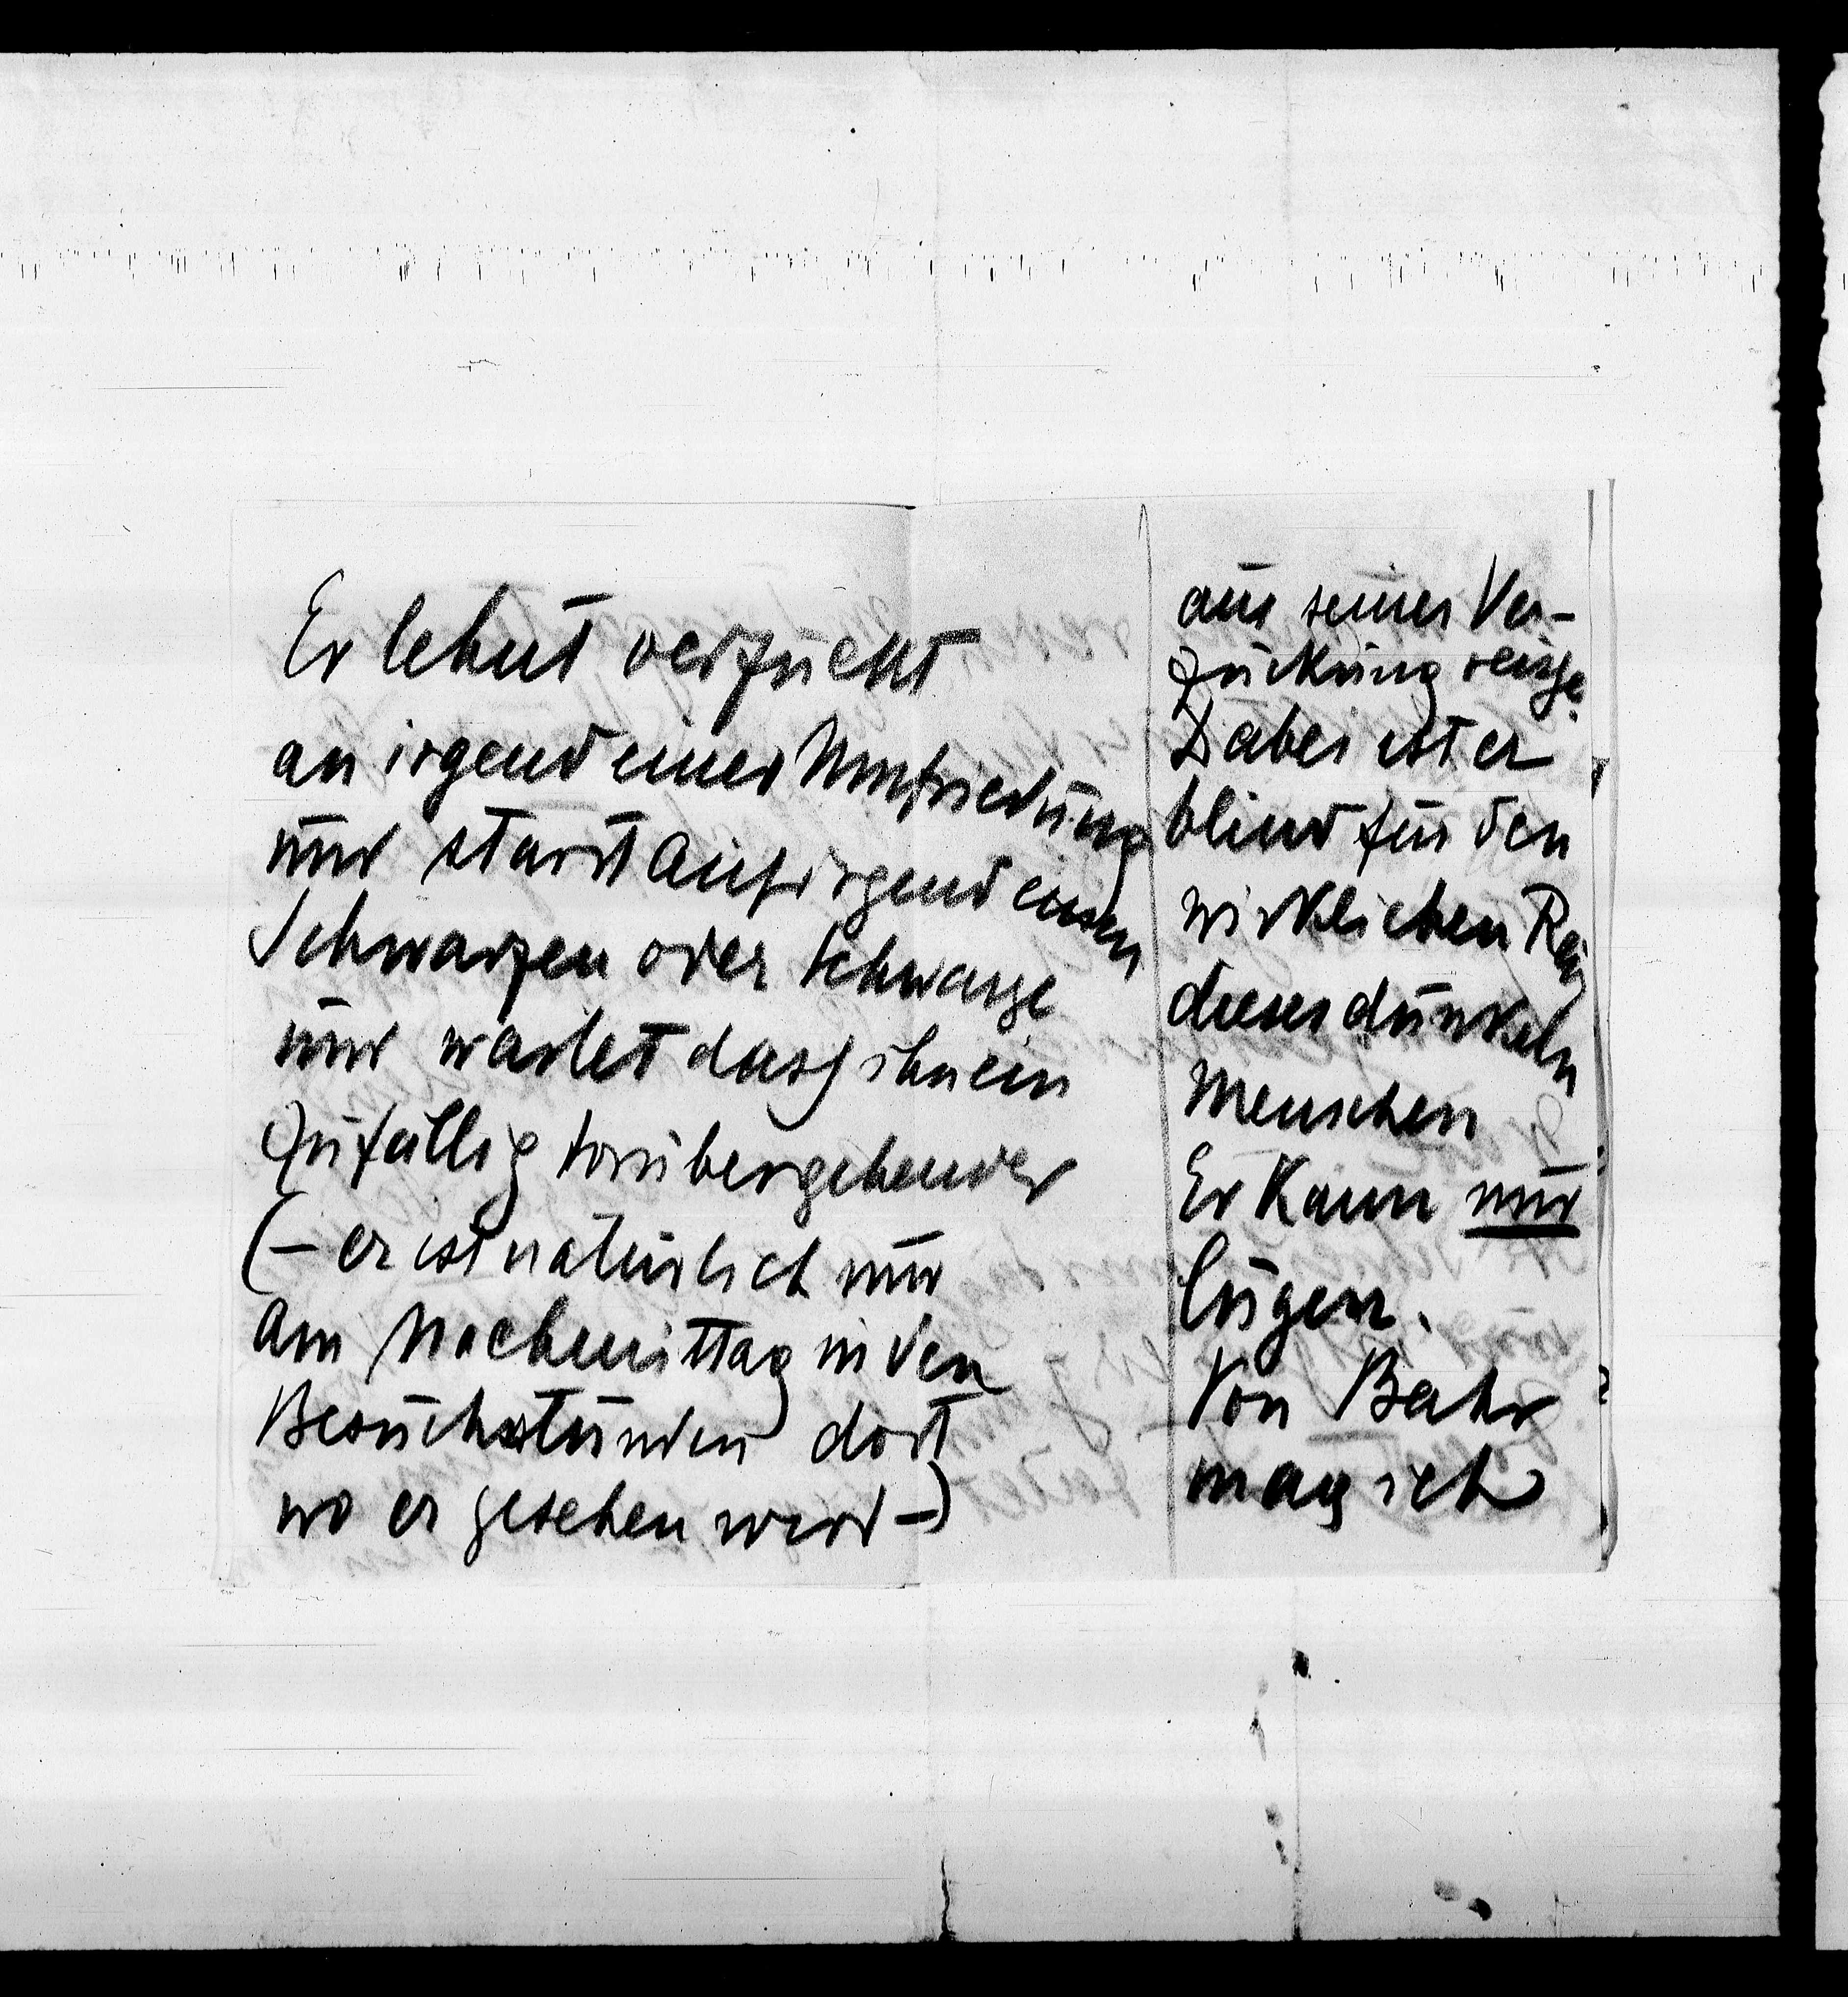 Er lehnt verzückt
an irgend einer Umfriedung
und starrt auf irgend einen
Schwarzen oder Schwarze
und wartet dass ihn ein
zufällig vorübergehender
(– er ist natürlich nur
am Nachmittag in den
Besuchstunden dort
wo er gesehen wird –)
aus seiner Ver-
zückung reisse.
Dabei ist er
blind für den
wirklichen Reiz
dieser dunkeln
Menschen
Er kann nur
lügen.
Von Bahr
mag ich